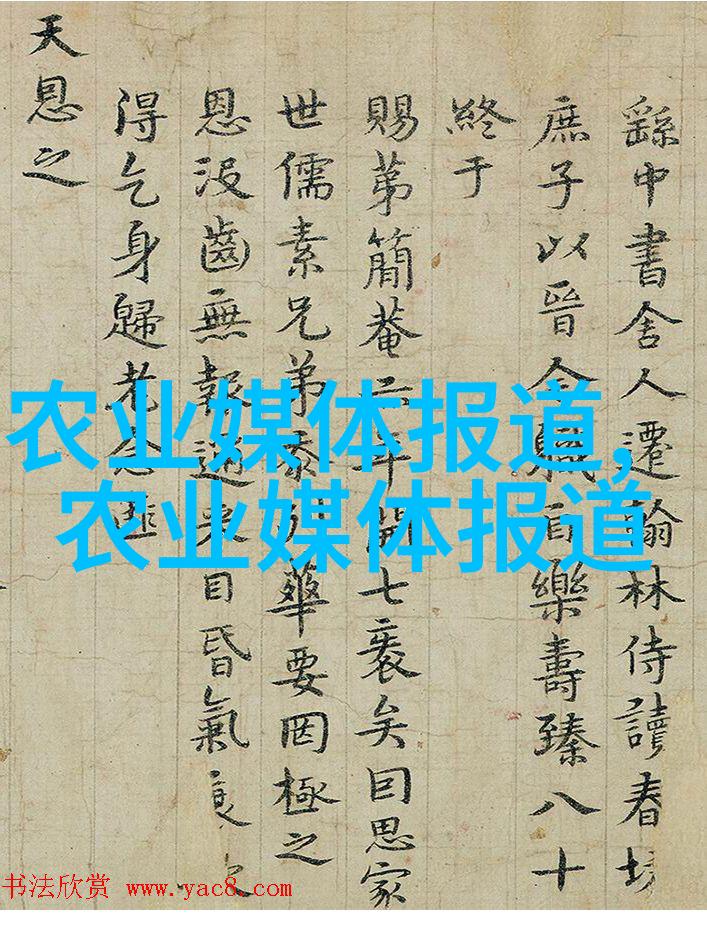 繇中書舍人遷翰林侍讀春坊
庶子以晉今職自樂壽臻八十
終于
賜第簡菴年開七袠矣囙思家
世儒素兄弟忝列華要罔極之
恩沒齒無報邇來目昏氣衰
得乞身歸老念
天恩之
农业媒体报道,
农业媒体报道
书法欣赏 www.yac8.com